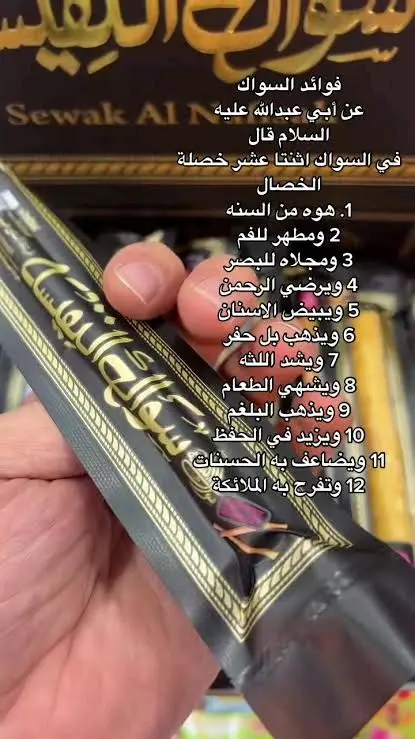 سواك النفيس
Sewak Al N
فوائد السواك
عن أبي عبدالله عليه
السلام قال
في السواك اثنتا عشر خصلة
الخصال
1. هوه من السنه
2 ومطهر للفم
3 ومجلاه للبصر
4 ويرضي الرحمن
5 ويبيض الاسنان
6 ويذهب بل حفر
7 ويشد اللثه
8 ويشهي الطعام
9 ويذهب البلغم
10 ويزيد في الحفظ
11 ويضاعف به الحسنات
12 وتفرح به الملائكة
سواك النفيس